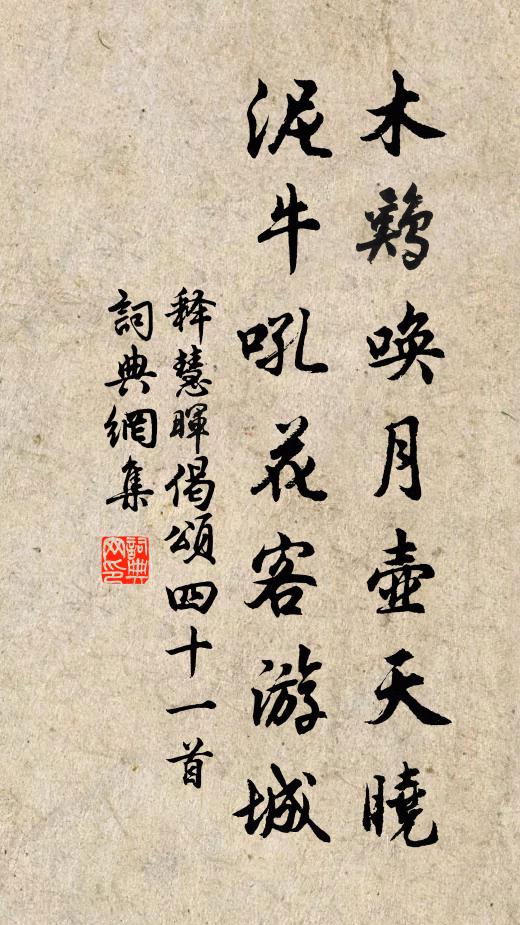 木鷄唤月壺天曉
泥牛吼花客游城
释慧暉偈頌四十一首
詞典網集
詞典網印